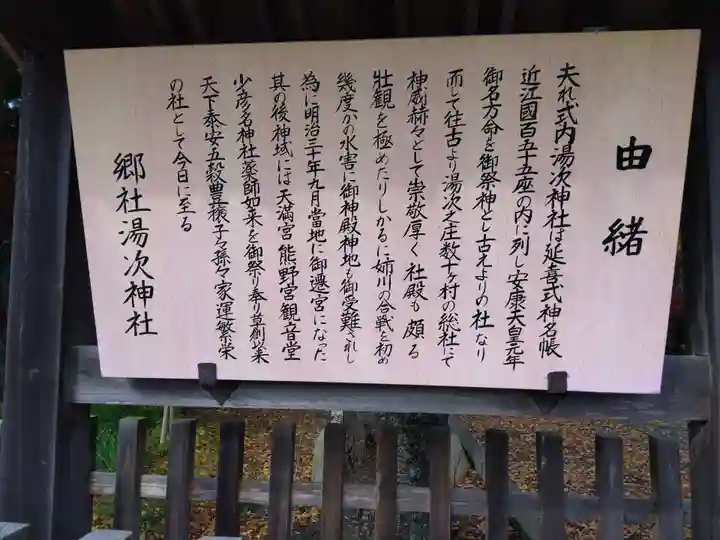 由緒
夫れ式内湯次神社は延喜式神名帳
近江國百五十五座の内に列し安康天皇元年
御名方命を御祭神とし古えよりの社なり
而して往古より湯次之庄数十ヶ村の総社にて
神威赫々として崇敬厚く社殿も頗る
壮観を極めたりしかるに姉川の合戦を初め
幾度かの水害に御神殿神地も御受難されし
為に明治三十年九月當地に御遷宮になった
其の後神域には天満宮熊野宮観音堂
少彦名神社薬師如来を御祭り奉り草創以来
天下泰安五穀豊穣子々孫々家運繁栄
の社として今日に至る
郷社湯次神社